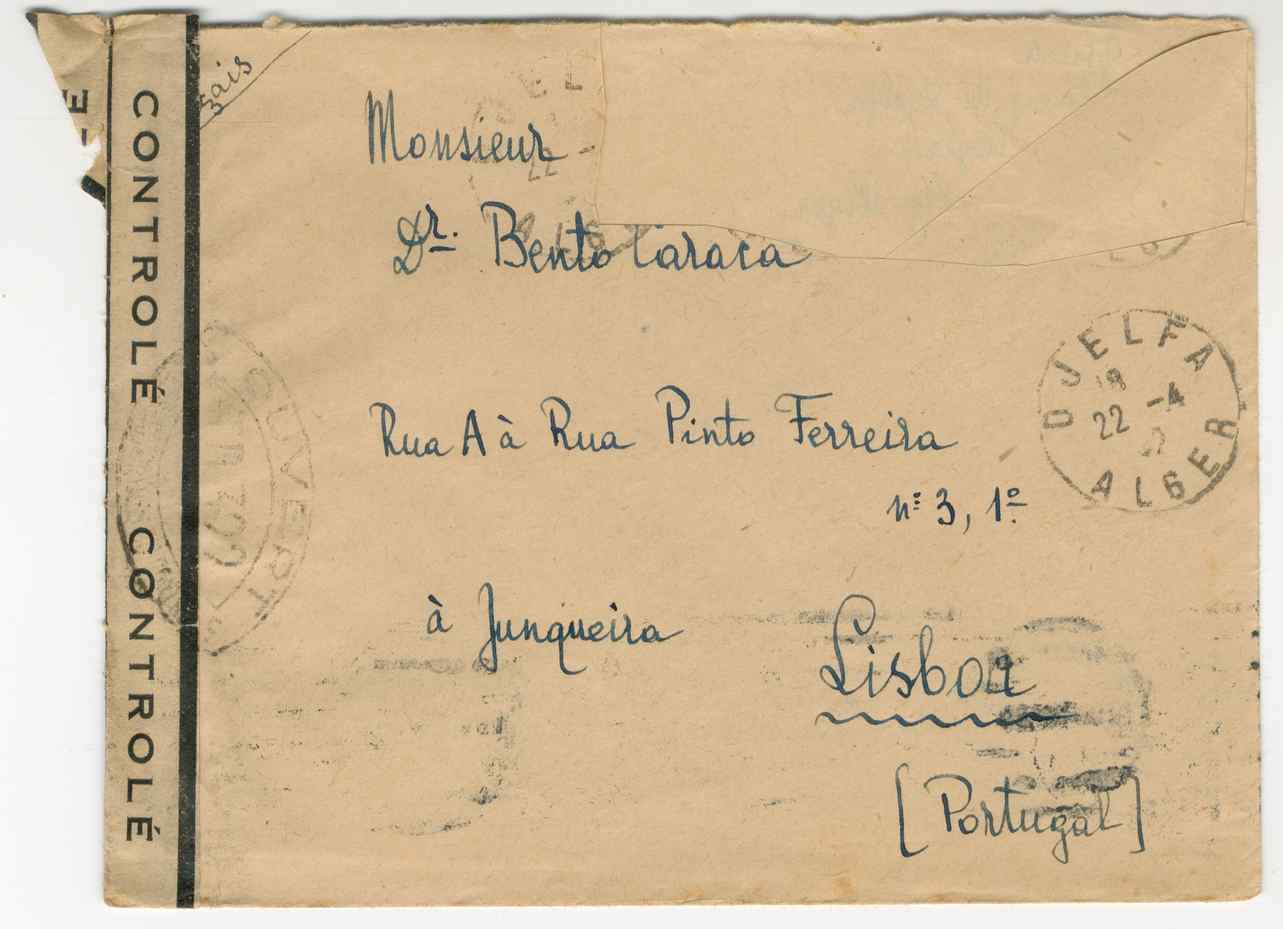 CONTROLÉ CONTROLÉ
çais
Monsieur
Dr. Bento Caraca
Rua A à Rua Pinto Ferreira
nº 3, 1º
à Junqueira
Lisboa
[Portugal]
DJELFA
18
22 -4
ALGER
OUVERT